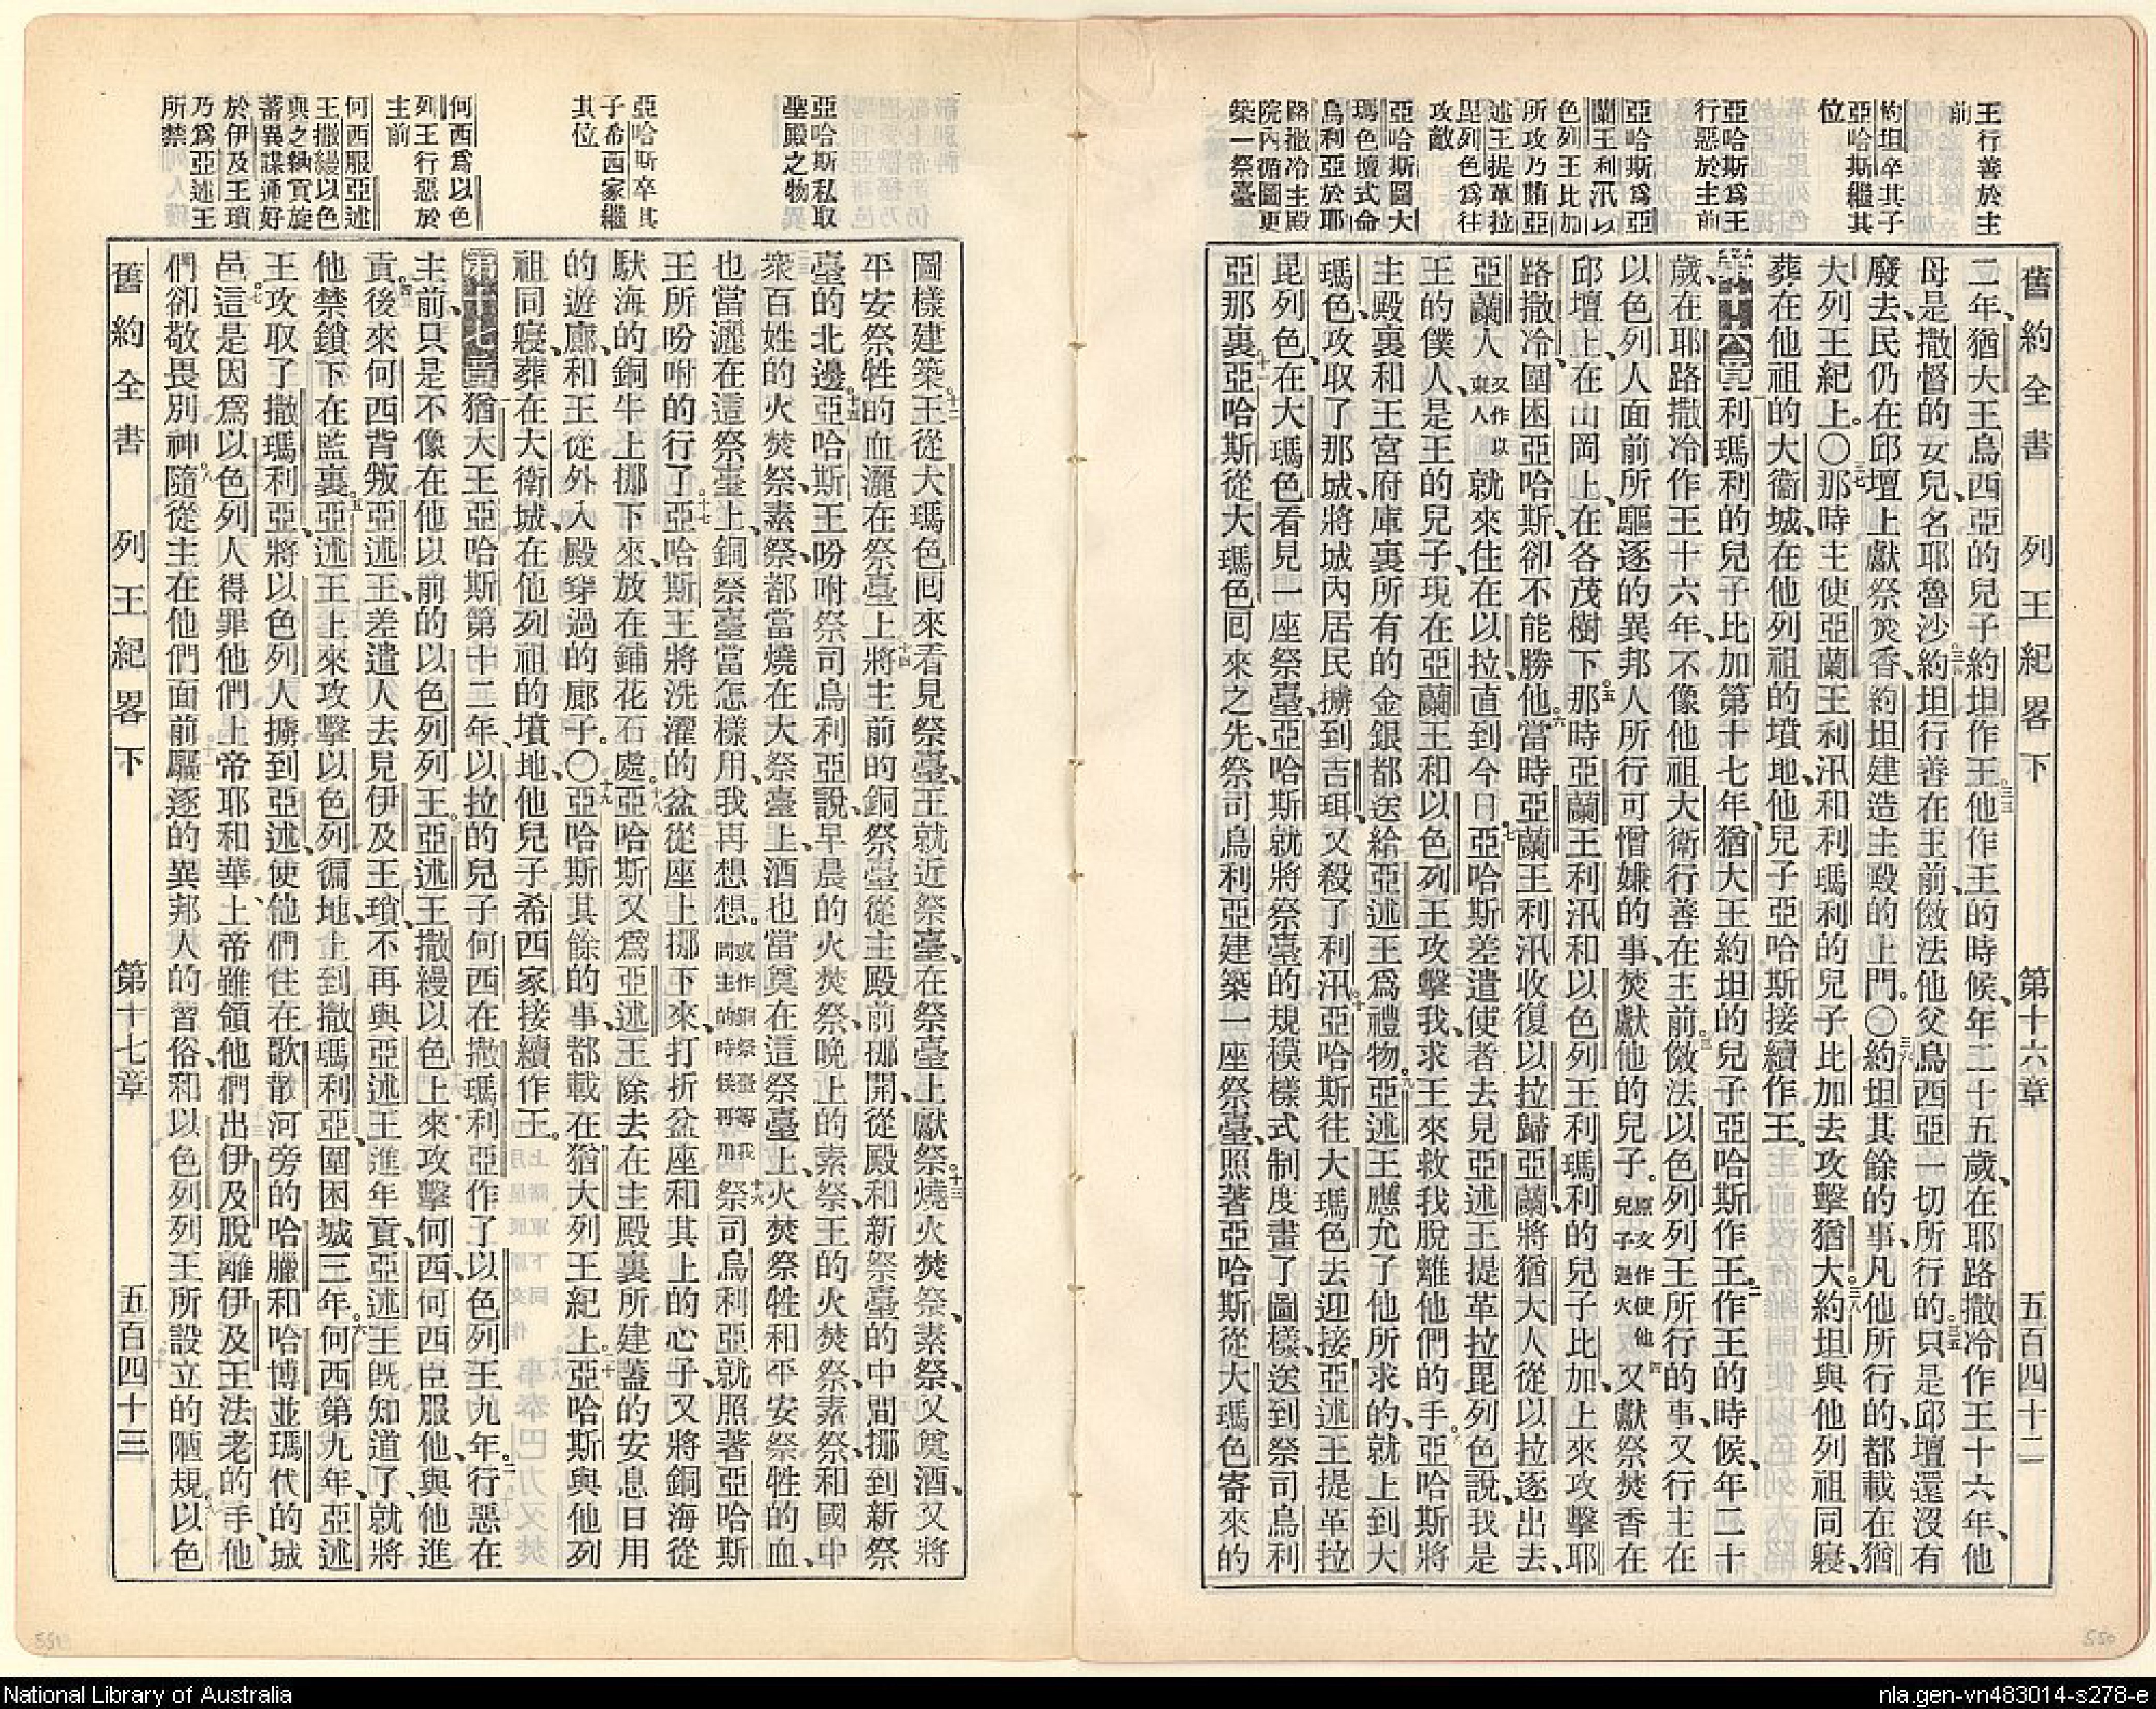 王行善於主
前
約坦卒其子
亞哈斯繼其
位
亞哈斯爲王
行惡於主前
亞哈斯爲亞
蘭王利汛以
色列王比加
所攻乃賄亞
述王提革拉
毘列色爲往
攻敵
亞哈斯圖大
瑪色壇式命
烏利亞於耶
路撒冷主殿
院內循圖更
築一祭臺
舊約全書 列王紀畧下 第十六章 五百四十二
二年、猶大王烏西亞的兒子約坦作王。三十三他作王的時候、年二十五歲、在耶路撒冷作王十六年、他
母是撒督的女兒、名耶魯沙。三十四約坦行善在主前、傚法他父烏西亞一切所行的。三十五只是邱壇還沒有
廢去、民仍在邱壇上獻祭焚香、約坦建造主殿的上門。〇三十六約坦其餘的事、凡他所行的、都載在猶
大列王紀上。〇三十七那時主使亞蘭王利汛和利瑪利的兒子比加去攻擊猶大。三十八約坦與他列祖同寢、
葬在他祖的大衞城、在他列祖的墳地、他兒子亞哈斯接續作王。
第十六章 一利瑪利的兒子比加第十七年、猶大王約坦的兒子亞哈斯作王。二作王的時候、年二十
歲、在耶路撒冷作王十六年、不像他祖大衞行善在主前、三傚法以色列列王所行的事、又行主在
以色列人面前所驅逐的異邦人所行可憎嫌的事、焚獻他的兒子。原文作使他兒子過火四又獻祭焚香在
邱壇上、在山岡上、在各茂樹下。五那時亞蘭王利汛和以色列王利瑪利的兒子比加、上來攻擊耶
路撒冷、圍困亞哈斯、卻不能勝他。六當時亞蘭王利汛收復以拉歸亞蘭、將猶大人從以拉逐出去、
亞蘭人又作以東人就來住在以拉、直到今日。七亞哈斯差遣使者去見亞述王提革拉毘列色說、我是
王的僕人、是王的兒子、現在亞蘭王和以色列王攻擊我、求王來救我脫離他們的手。八亞哈斯將
主殿裏和王宮府庫裏所有的金銀都送給亞述王爲禮物。九亞述王應允了他所求的、就上到大
瑪色、攻取了那城、將城內居民擄到吉珥、又殺了利汛。十亞哈斯往大瑪色去迎接亞述王提革拉
毘列色、在大瑪色看見一座祭臺、亞哈斯就將祭臺的規模樣式制度畫了圖樣、送到祭司烏利
亞那裏。十一亞哈斯從大瑪色回來之先、祭司烏利亞建築一座祭臺、照著亞哈斯從大瑪色寄來的
亞哈斯私取
聖殿之物
亞哈斯卒其
子希西家繼
其位
何西爲以色
列王行惡於
主前
何西服亞述
王撒縵以色
與之納貢旋
蓄異謀通好
於伊及王瑣
乃爲亞述王
所禁
圖樣建築。十二王從大瑪色回來看見祭臺、王就近祭臺、在祭臺上獻祭。十三燒火焚祭、素祭、又奠酒、又將
平安祭牲的血灑在祭臺上。十四將主前的銅祭臺從主殿前挪開、從殿和新祭臺的中間挪到新祭
臺的北邊。十五亞哈斯王吩咐祭司烏利亞說、早晨的火焚祭、晚上的素祭、王的火焚祭、素祭、和國中
衆百姓的火焚祭、素祭、都當燒在大祭臺上、酒也當奠在這祭臺上、火焚祭牲和平安祭牲的血、
也當灑在這祭臺上、銅祭臺當怎樣用、我再想想。或作銅祭臺等我問主的時候再用十六祭司烏利亞就照著亞哈斯
王所吩咐的行了。十七亞哈斯王將洗濯的盆從座上挪下來、打折盆座和其上的心子、又將銅海從
馱海的銅牛上挪下來、放在鋪花石處。十八亞哈斯又爲亞述王除去在主殿裏所建蓋的安息日用
的遊廊、和王從外入殿穿過的廊子。〇十九亞哈斯其餘的事、都載在猶大列王紀上。二十亞哈斯與他列
祖同寢、葬在大衞城、在他列祖的墳地、他兒子希西家接續作王。
第十七章 一猶大王亞哈斯第十二年、以拉的兒子何西在撒瑪利亞作了以色列王九年。二行惡在
主前、只是不像在他以前的以色列列王。三亞述王撒縵以色上來攻擊何西、何西臣服他、與他進
貢。四後來何西背叛亞述王、差遣人去見伊及王瑣、不再與亞述王進年貢、亞述王旣知道了、就將
他禁鎖下在監裏。五亞述王上來攻擊以色列徧地、上到撒瑪利亞、圍困城三年。六何西第九年、亞述
王攻取了撒瑪利亞、將以色列人擄到亞述、使他們住在歌散河旁的哈臘和哈博並瑪代的城
邑。七這是因爲以色列人得罪他們上帝耶和華、上帝雖領他們出伊及脫離伊及王法老的手、他
們卻敬畏別神。八隨從主在他們面前驅逐的異邦人的習俗、和以色列列王所設立的陋規。九以色
舊約全書 列王紀畧下 第十七章 五百四十三
551
550
National Library of Australia
nla.gen-vn483014-s278-e